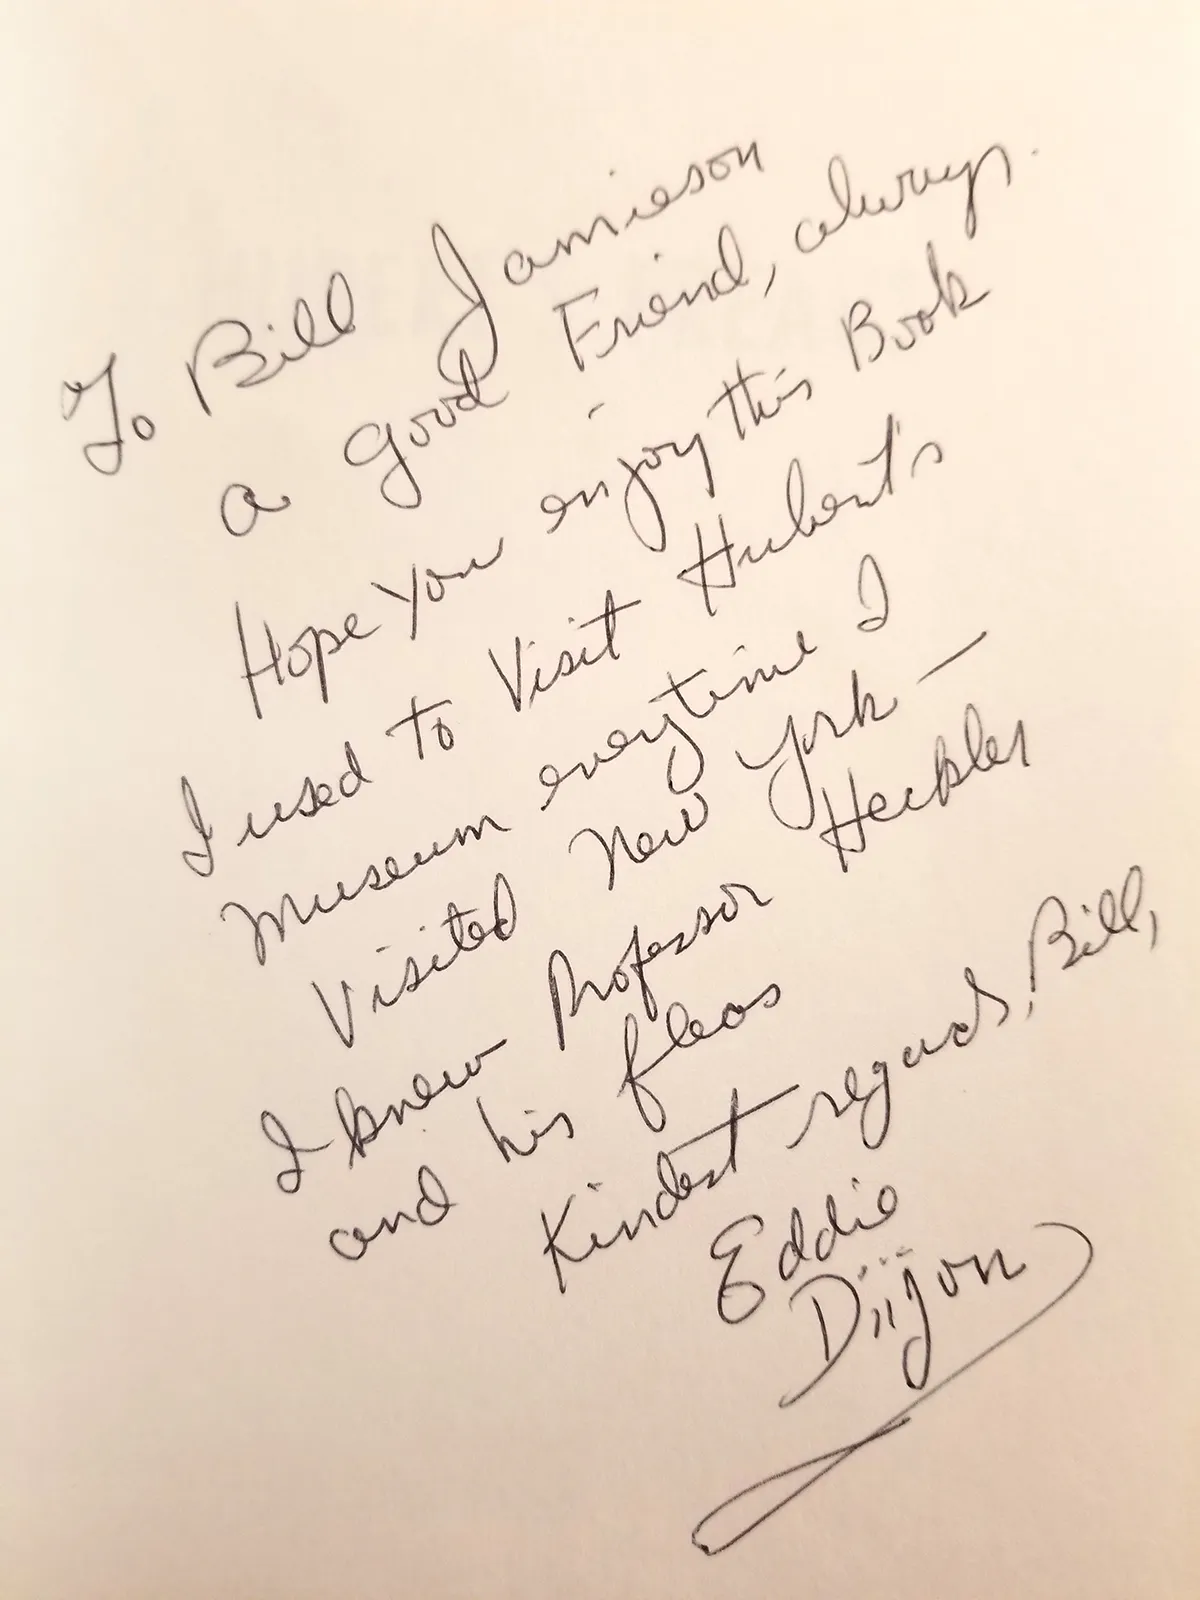 To Bill Jamieson
a good Friend, always.
Hope you enjoy this Book
I used to Visit Hubert's
Museum everytime I
Visited New York —
I knew Professor Heckler
and his fleas
Kindest regards, Bill,
Eddie
Diijon